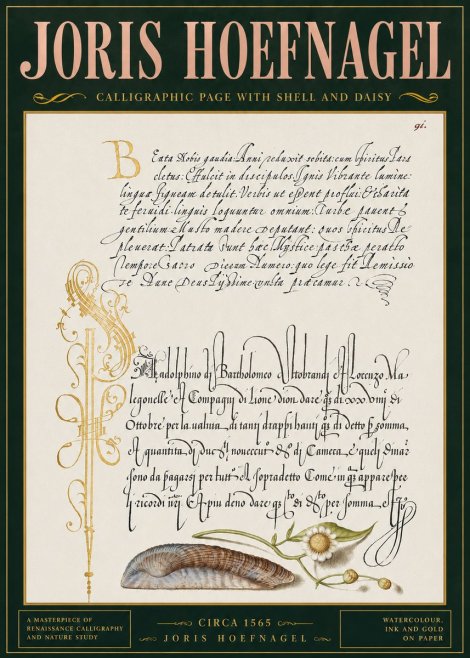 JORIS HOEFNAGEL
CALLIGRAPHIC PAGE WITH SHELL AND DAISY
91.
BEata Nobis gaudia: Anni reduxit orbita: cum Spiritus Para
cletus: Effulcit in discipulos: Ignis Vibrante lumine:
linguæ figuram detulit. Verbis ut essent proflui: & charita
te feruidi. linguis loquuntur omnium: Turbæ pauent
gentilium: Musto madere deputant: quos spiritus Re
pleuerat. Patrata sunt hæc Mystice: pascha peracto
tempore: Sacro dierum numero: quo lege fit Remissio
te Nunc Deus piissime: vultu precamur.
Bartholomeo et Lorenzo Ma
Compagni di Lione dare di
Ottobre per la di tanti drappi hauti di detto somma
A quantita di di Camera e quelj dinar
sono da pagarsj per Al sopradetto Come in appare per
ricordi Et piu deno dare di per somma
A MASTERPIECE OF
RENAISSANCE CALLIGRAPHY
AND NATURE STUDY
CIRCA 1565
JORIS HOEFNAGEL
WATERCOLOUR,
INK AND GOLD
ON PAPER